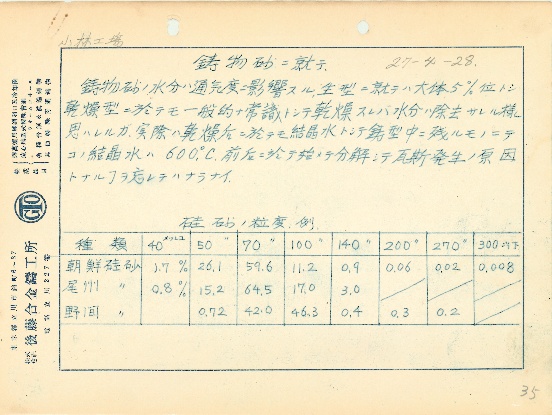 小林工場
鋳物砂ニ就テ 27-4-28.
鋳物砂ノ水分ハ通気度ニ影響スル.生型ニ就テハ大体5%位トシ
乾燥型ニ於テモ一般的ナ常識トシテ乾燥スレバ水分ハ除去サレル様ニ
思ハレルガ.実際ハ乾燥后ニ於テモ結晶水トシテ鋳型中ニ残ルモノニテ
コノ結晶水ハ 600℃.前后ニ於テ始メテ分解シテ瓦斯発生ノ原因
トナル了ヲ忘レテハナラナイ.
硅砂ノ粒度.例.
種類 40メッシュ 50〃 70〃 100〃 140〃 200〃 270〃 300以下
朝鮮硅砂 1.7% 26.1 59.6 11.2 0.9 0.06 0.02 0.008
尾州〃 0.8% 15.2 64.5 17.0 3.0
野間〃 0.72 42.0 46.3 0.4 0.3 0.2
後藤合金鋳工所
35